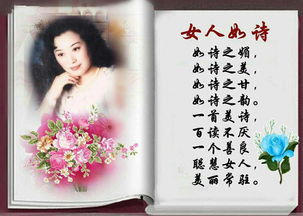 女人如诗
如诗之媚，
如诗之美，
如诗之甘，
如诗之韵。
一首美诗，
百读不厌
一个善良，
聪慧女人，
美丽常驻。